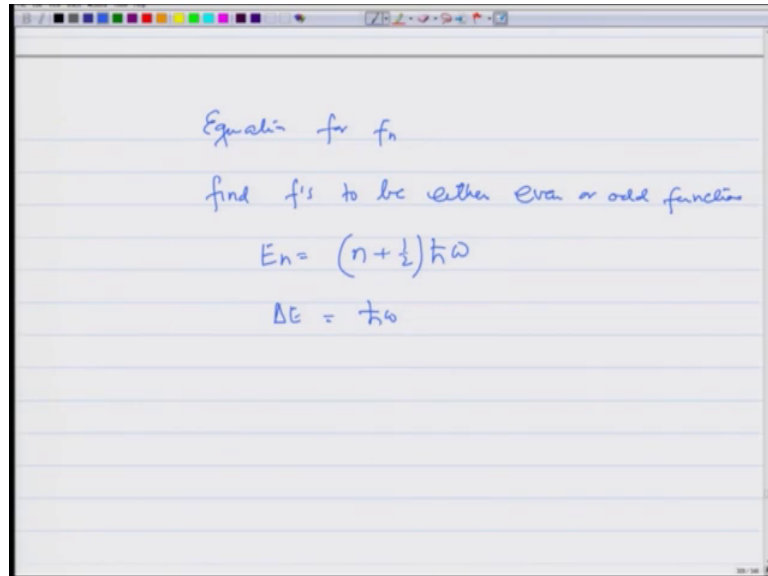 Equation for fn
find f's to be either even or odd functions
En = (n + 1/2) ħω
ΔE = ħω